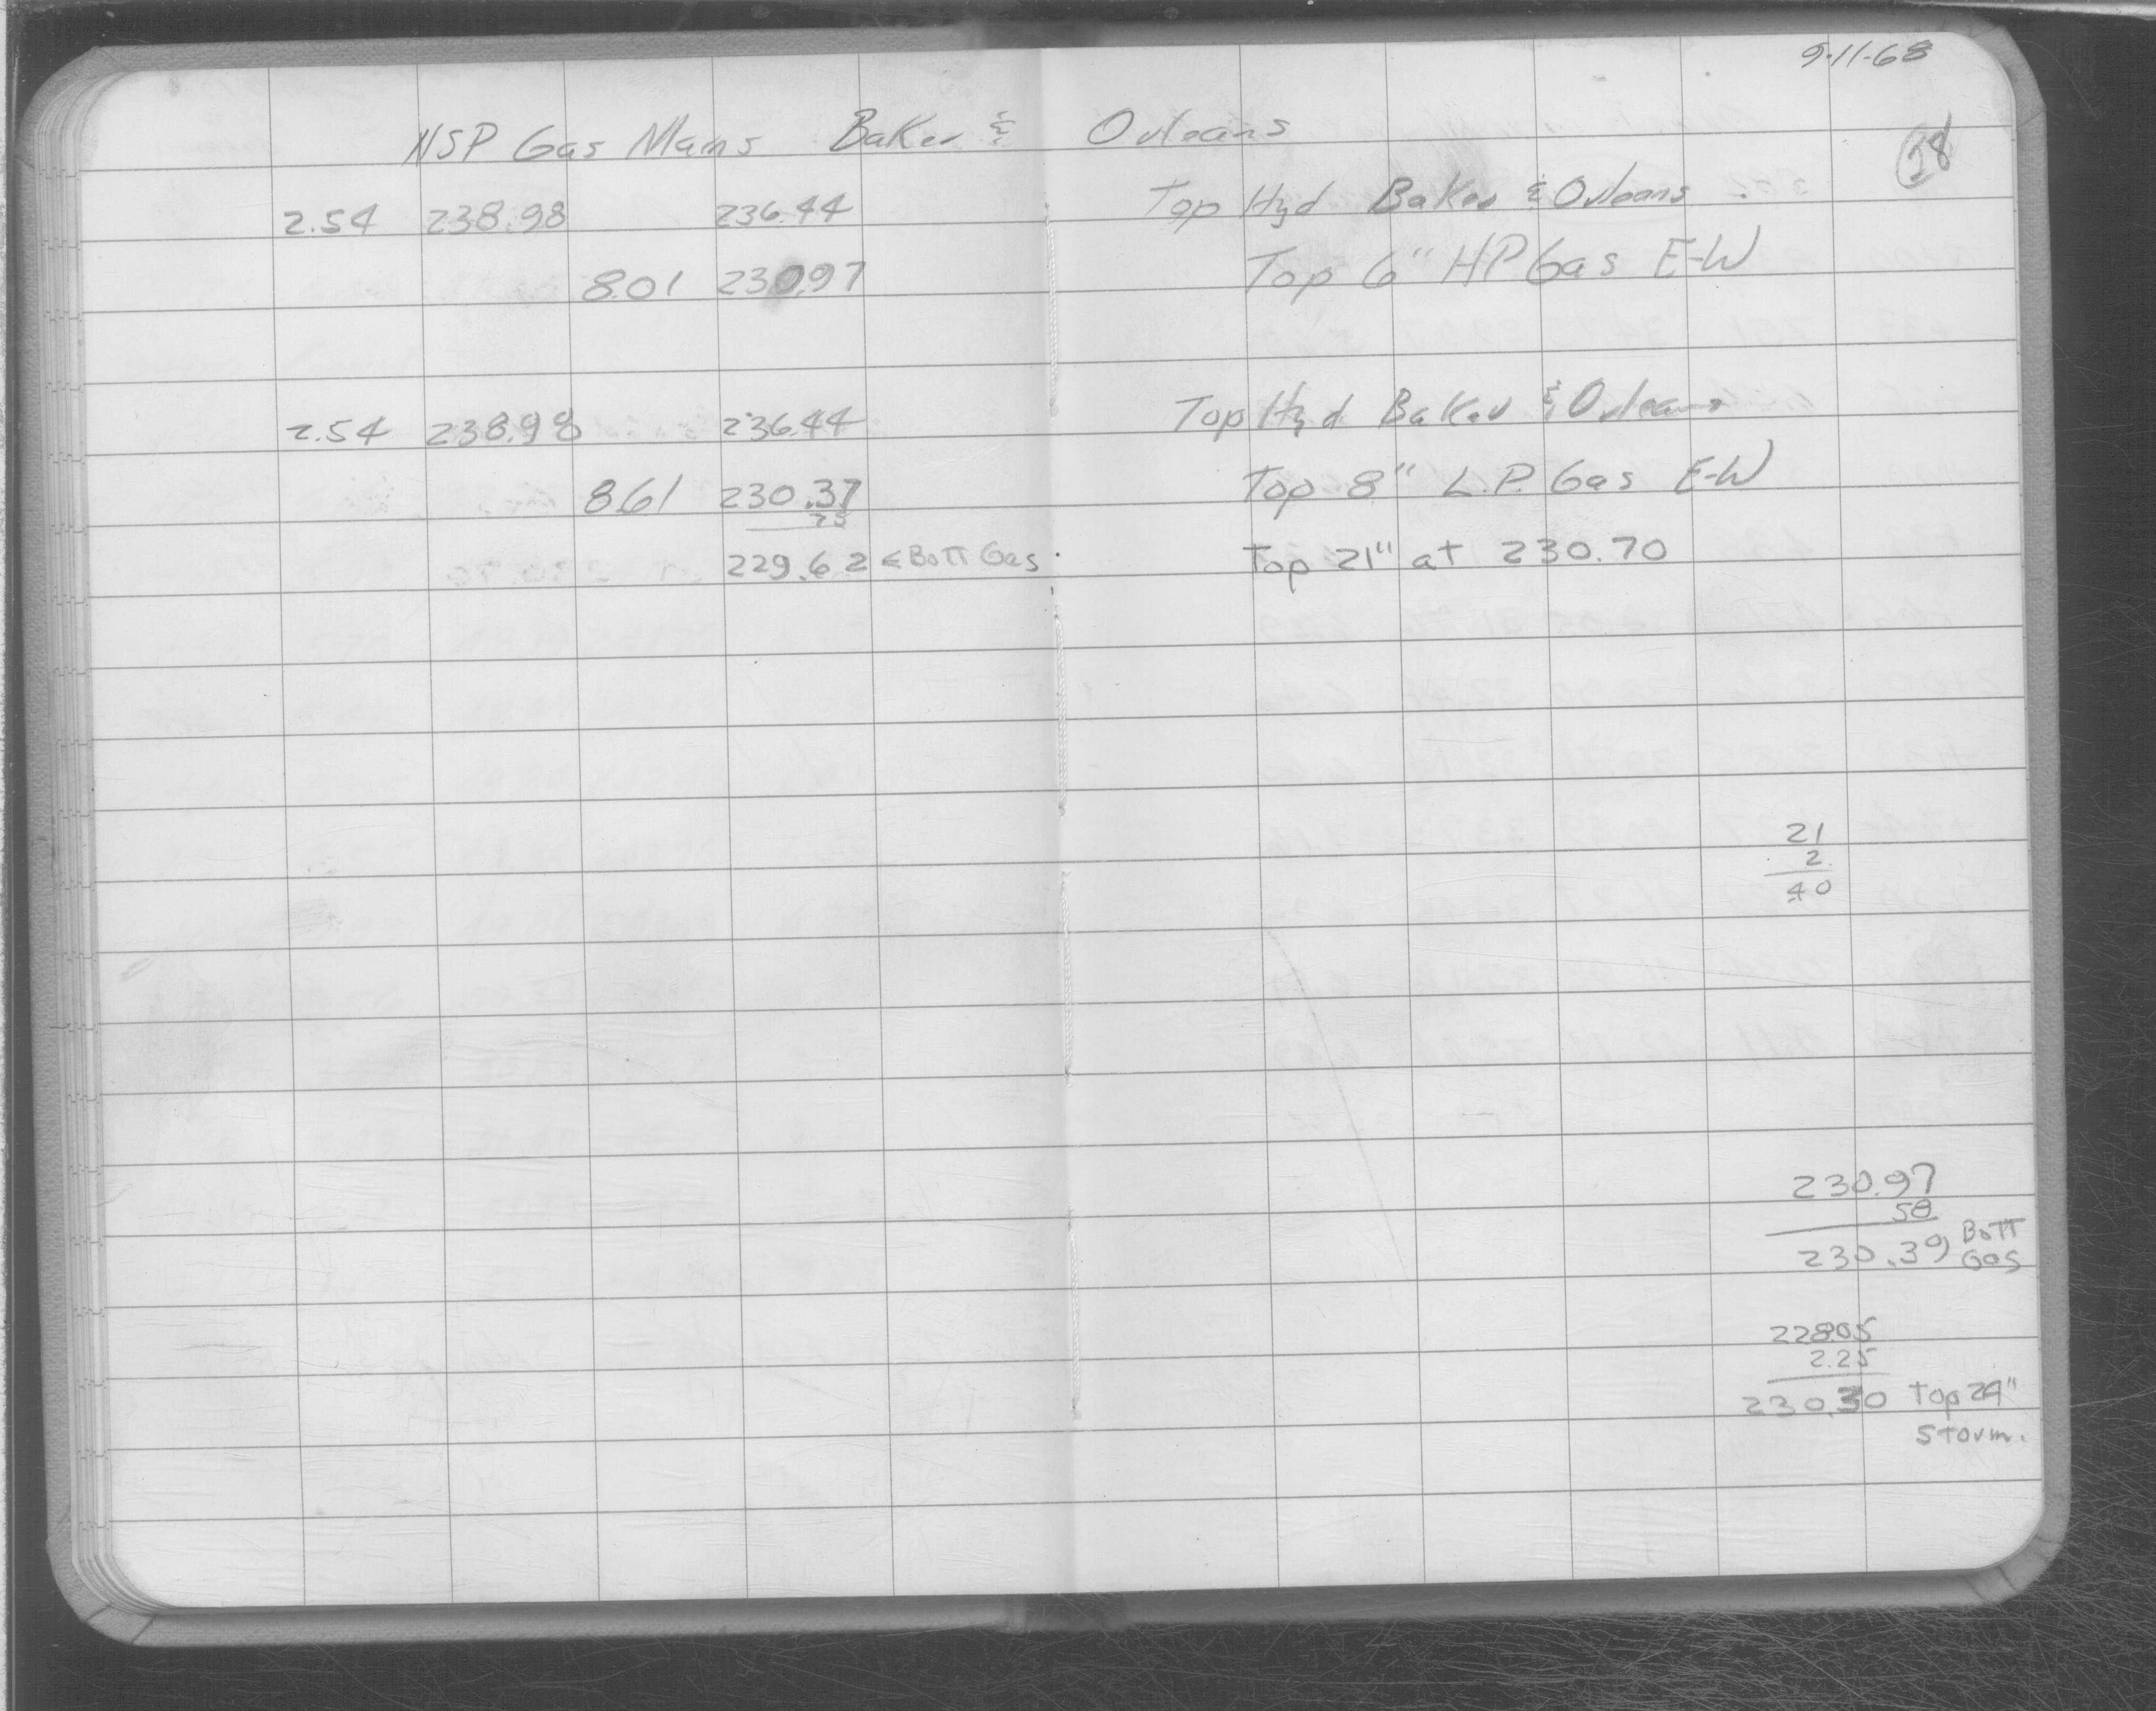 9-11-68
NSP Gas Mans Baker & Orleans
28
2.54 238.98 236.44 Top Hyd Baker & Orleans
8.01 230.97 Top 6" HP Gas E-W
2.54 238.98 236.44 Top Hyd Baker & Orleans
8.61 230.37 Top 8" L.P. Gas E-W
75
229.62 < Bott Gas. Top 21" at 230.70
21
2
40
230.97
58
230.39 Bott
Gas
228.05
2.25
230.30 Top 24"
Storm.